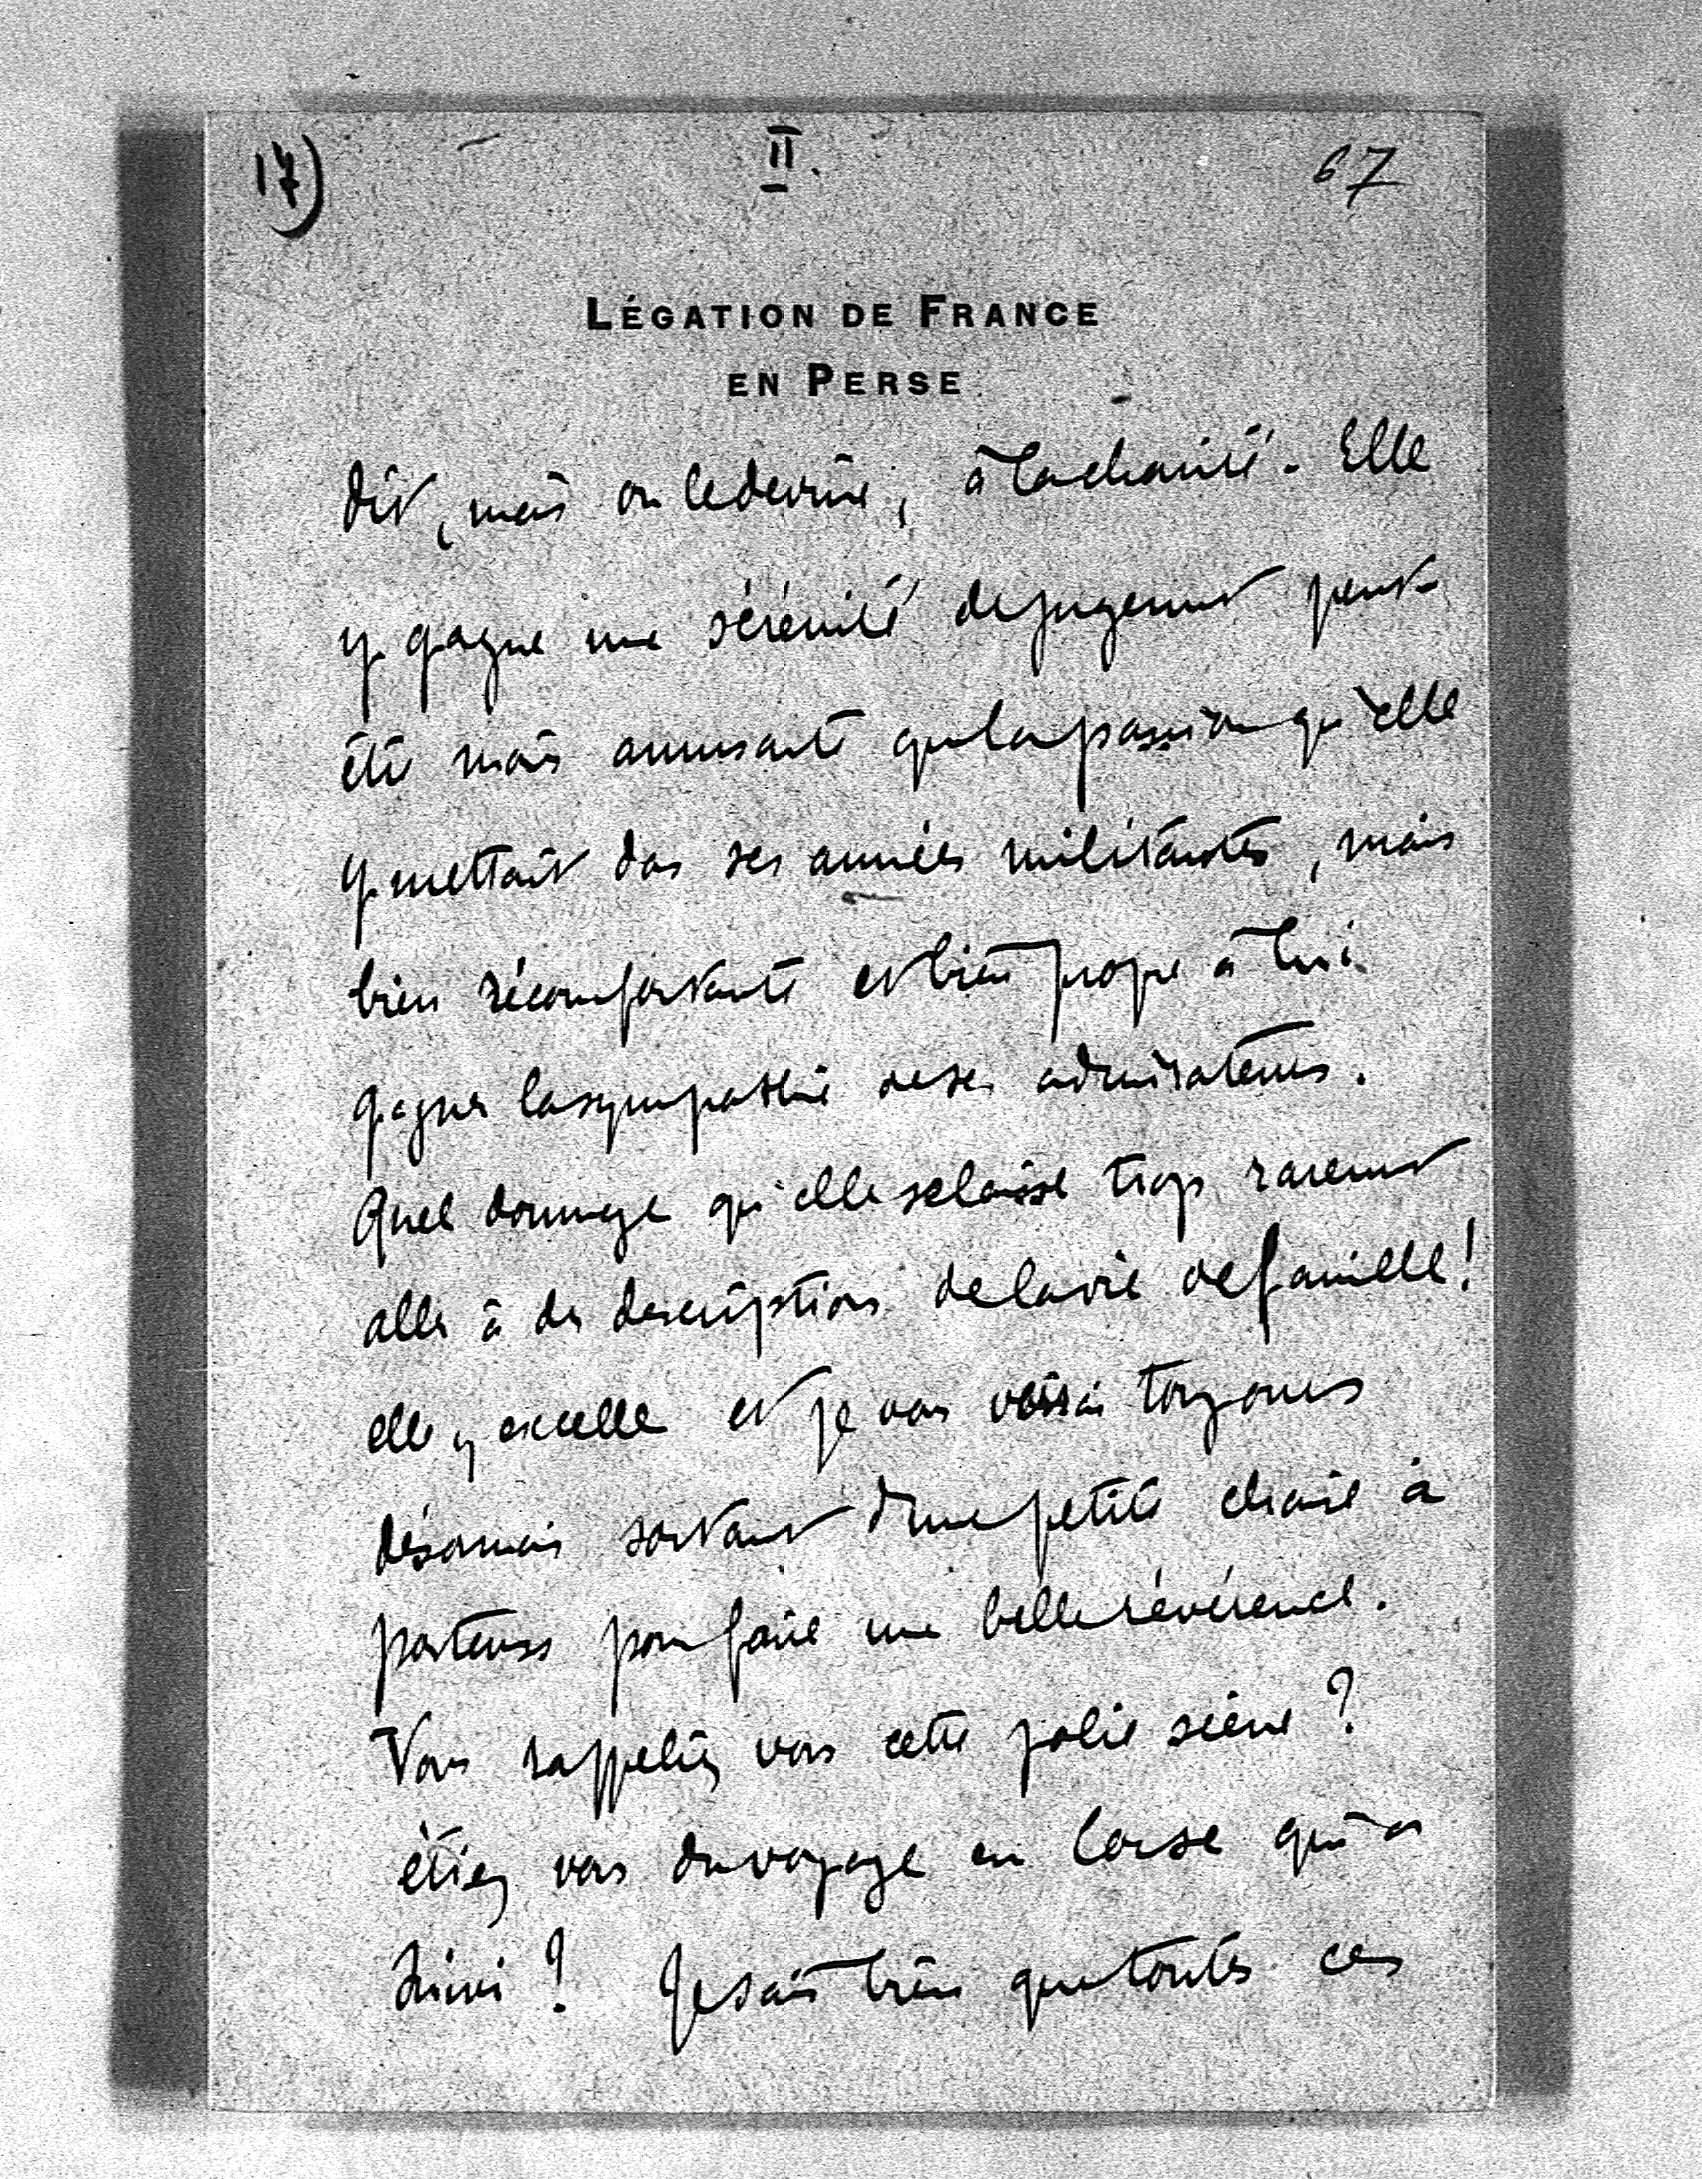 17)
II.
67
LÉGATION DE FRANCE
EN PERSE
dit, mais on le devine, à la charité. Elle
y gagne une sérénité de jugement peut-
être moins amusante que la passion qu'elle
y mettait dans ses années militantes, mais
bien réconfortante et bien propre à lui
gagner la sympathie de ses admirateurs.
Quel dommage qu'elle se laisse trop rarement
aller à des descriptions de la vie de famille!
elle y excelle et je vous verrai toujours
désormais sortant d'une petite chaise à
porteurs pour faire une belle révérence.
Vous rappeliez vous cette jolie scène?
étiez vous du voyage en Corse qui a
suivi? Je sais bien que toutes ces